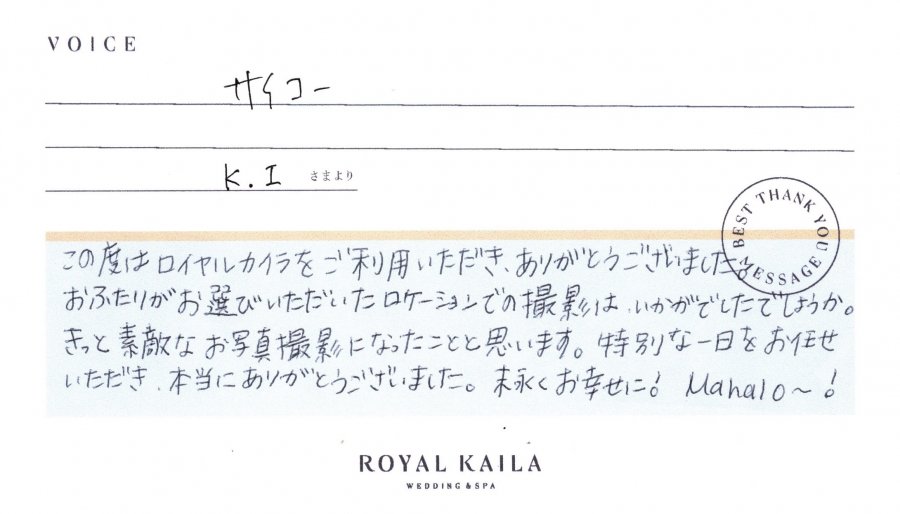 VOICE
サイコー
K.I さまより
BEST THANK YOU MESSAGE
この度はロイヤルカイラをご利用いただき、ありがとうございました。
おふたりがお選びいただいたロケーションでの撮影は、いかがでしたでしょうか。
きっと素敵なお写真撮影になったことと思います。特別な一日をお任せ
いただき、本当にありがとうございました。末永くお幸せに! Mahalo~!
ROYAL KAILA
WEDDING & SPA